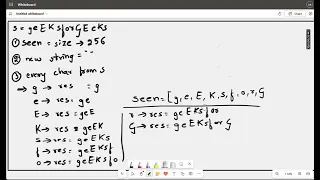 Whiteboard
Untitled whiteboard
s = geEKsforGEeKs
① seen = size → 256
② new string =
③ every char from s
g → res = g
e → res = ge
E → res = geE
K → res = geEK
s → res = geEKs
f → res = geEKsf
o → res = geEKsfo
seen = [g, e, E, K, s, f, o, r, G
r → res = geEKsfor
G → res = geEKsforG